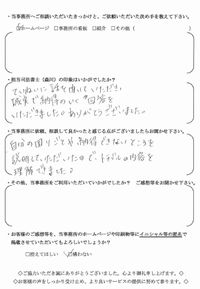 ・当事務所へご相談いただいたきっかけと、ご依頼いただいた決め手を教えて下さい。
ホームページ □事務所の看板 □紹介 □その他（ ）
・担当司法書士（森川）の印象はいかがでしたか？
ていねいに話を聞いていただき、
誠実で納得のいくご回答を
いただきました。ありがとうございました。
・当事務所に依頼、相談して良かったと感じる点がございましたらお聞かせ下さい。
自分の困りごとや納得できないところを
説明していただいたので、トラブルの内容を
理解できました。
・その他、当事務所をご利用いただいていかがでしたか？ ご感想等をお聞かせ下さい。
・お客様のご感想等を、当事務所のホームページや印刷物等にイニシャル等の匿名で
掲載させていただいてもよろしいでしょうか？
□控えてほしい 構わない
◇ご協力いただき誠にありがとうございました。心より御礼申し上げます。◇
◇お客様の声をしっかり受け止め、より良いサービスの提供に努めて参ります。◇